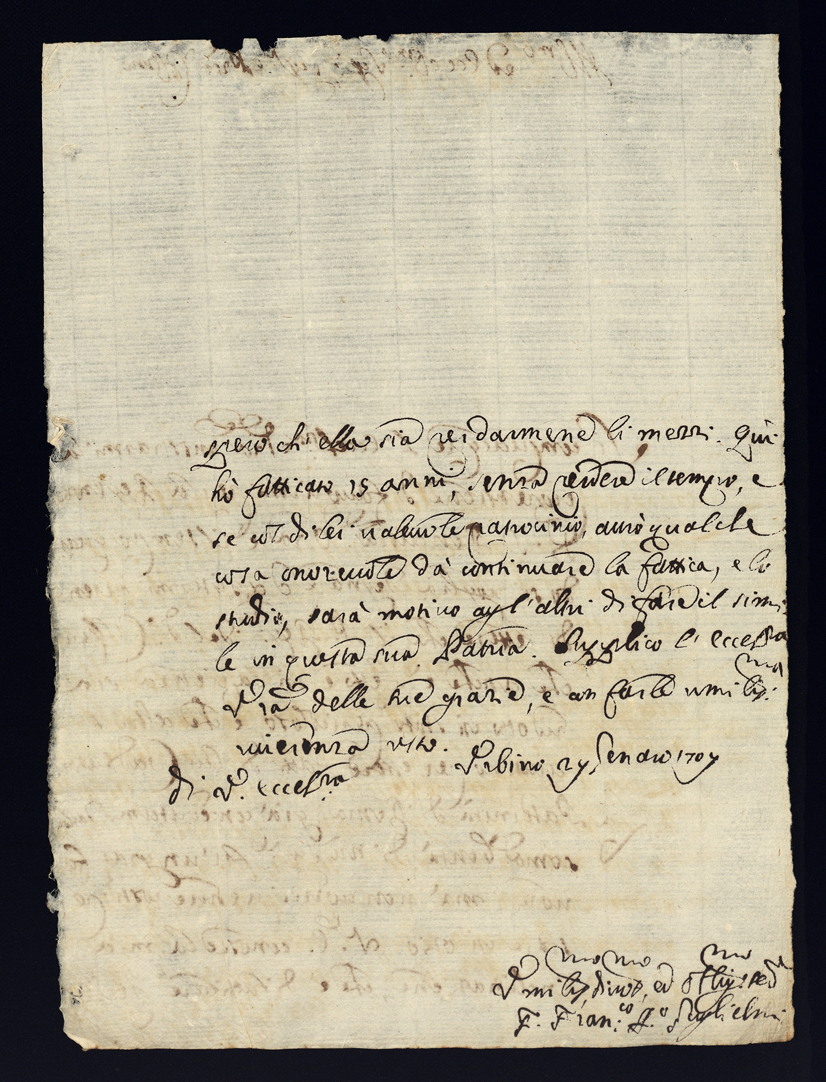 spero ch' ella sia per darmene li mezzi. Qui
hò fatticato 15 anni, senza perdere il tempo, e
se col di lei valevole patrocinio, avrò qualche
cosa onorevole dà continuare la fattica, e lo
studio, sarà motivo agl' altri di fare il simi
le in questa sua Patria. Supplico l' eccell.za
V.ra delle sue grazie, e con farle umiliss.ma
riverenza resto.
di V. eccell.za Urbino 27 Genaro 1707
Umiliss.mo Divot.mo, ed Obblig.mo
F. Fran.co Guglielmi